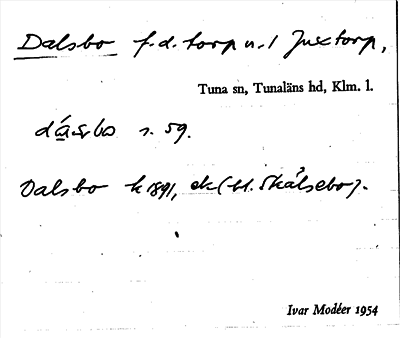 Dalsbo f.d. torp u. / Juxtorp,
Tuna sn, Tunaläns hd, Klm. l.
dá̱sbo s. 59.
Dalsbo k 1891, ek (bl. Skålsebo).
Ivar Modéer 1954